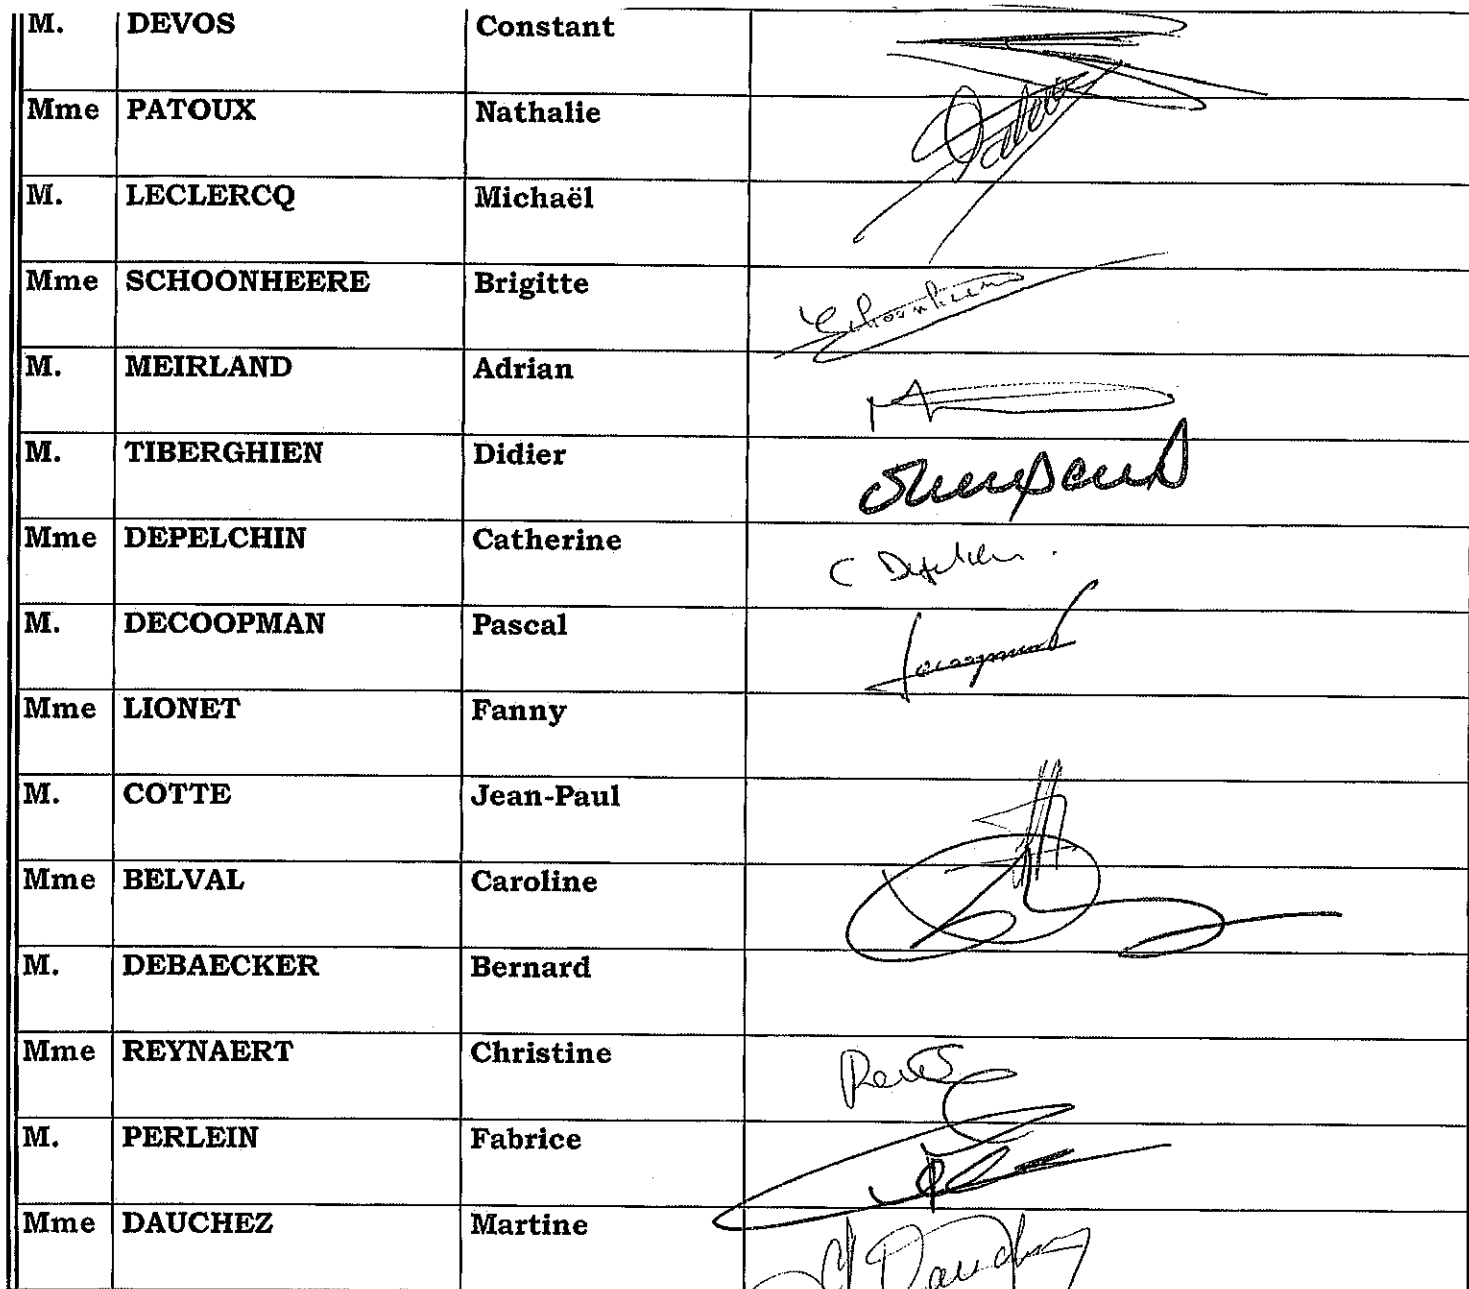 M. DEVOS Constant
Mme PATOUX Nathalie
M. LECLERCQ Michaël
Mme SCHOONHEERE Brigitte
M. MEIRLAND Adrian
M. TIBERGHIEN Didier
Mme DEPELCHIN Catherine
C Depelchin.
M. DECOOPMAN Pascal
Mme LIONET Fanny
M. COTTE Jean-Paul
Mme BELVAL Caroline
M. DEBAECKER Bernard
Mme REYNAERT Christine
M. PERLEIN Fabrice
Mme DAUCHEZ Martine